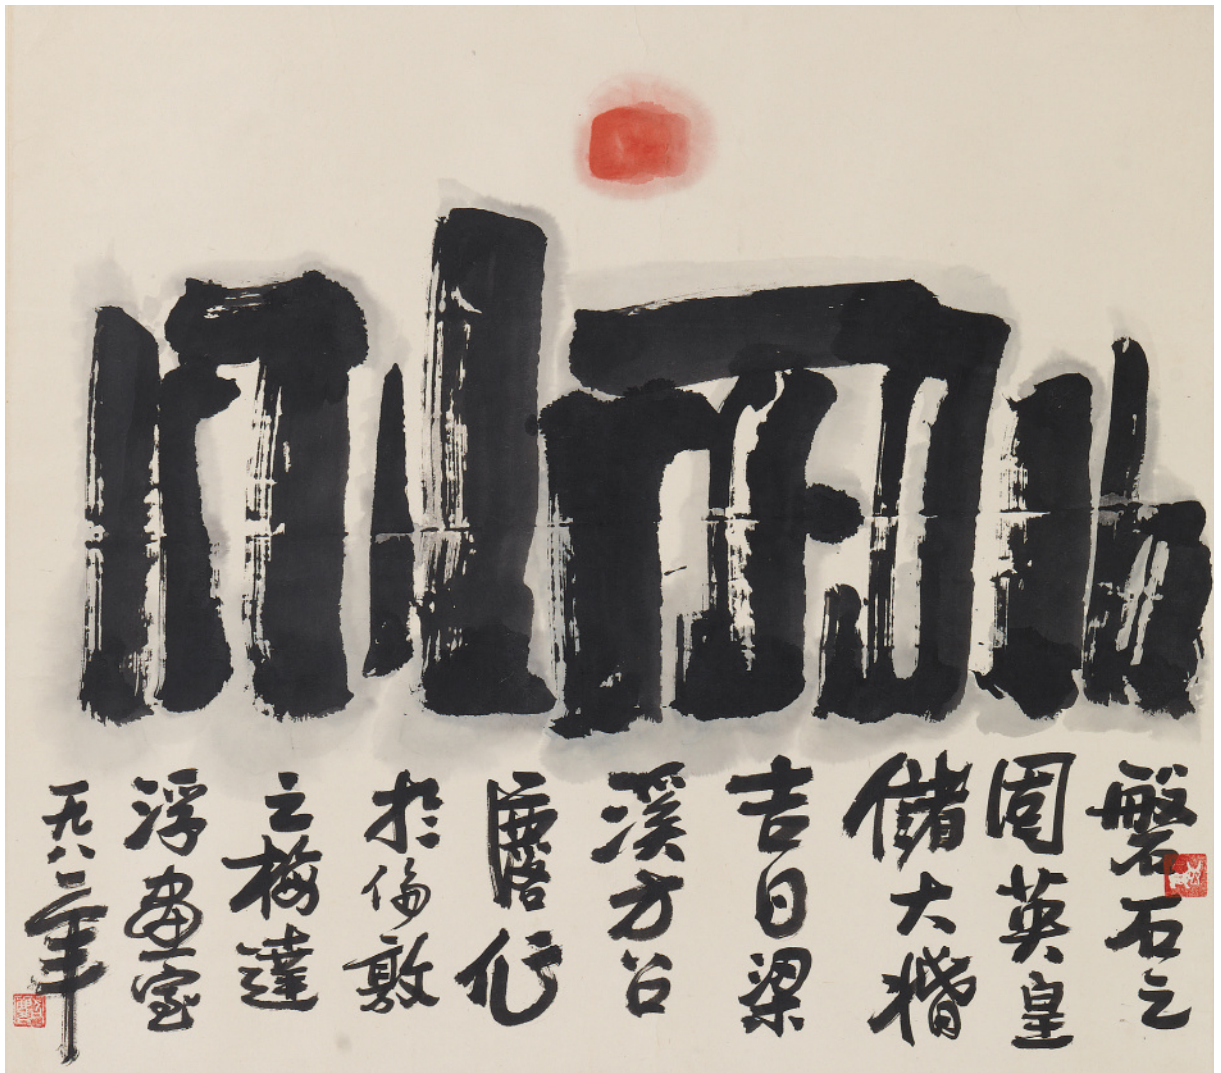 磐石之
固英皇
儲大婚
吉日梁
溪方召
麐作
於倫敦
之梅達
浮畫室
一九八一年